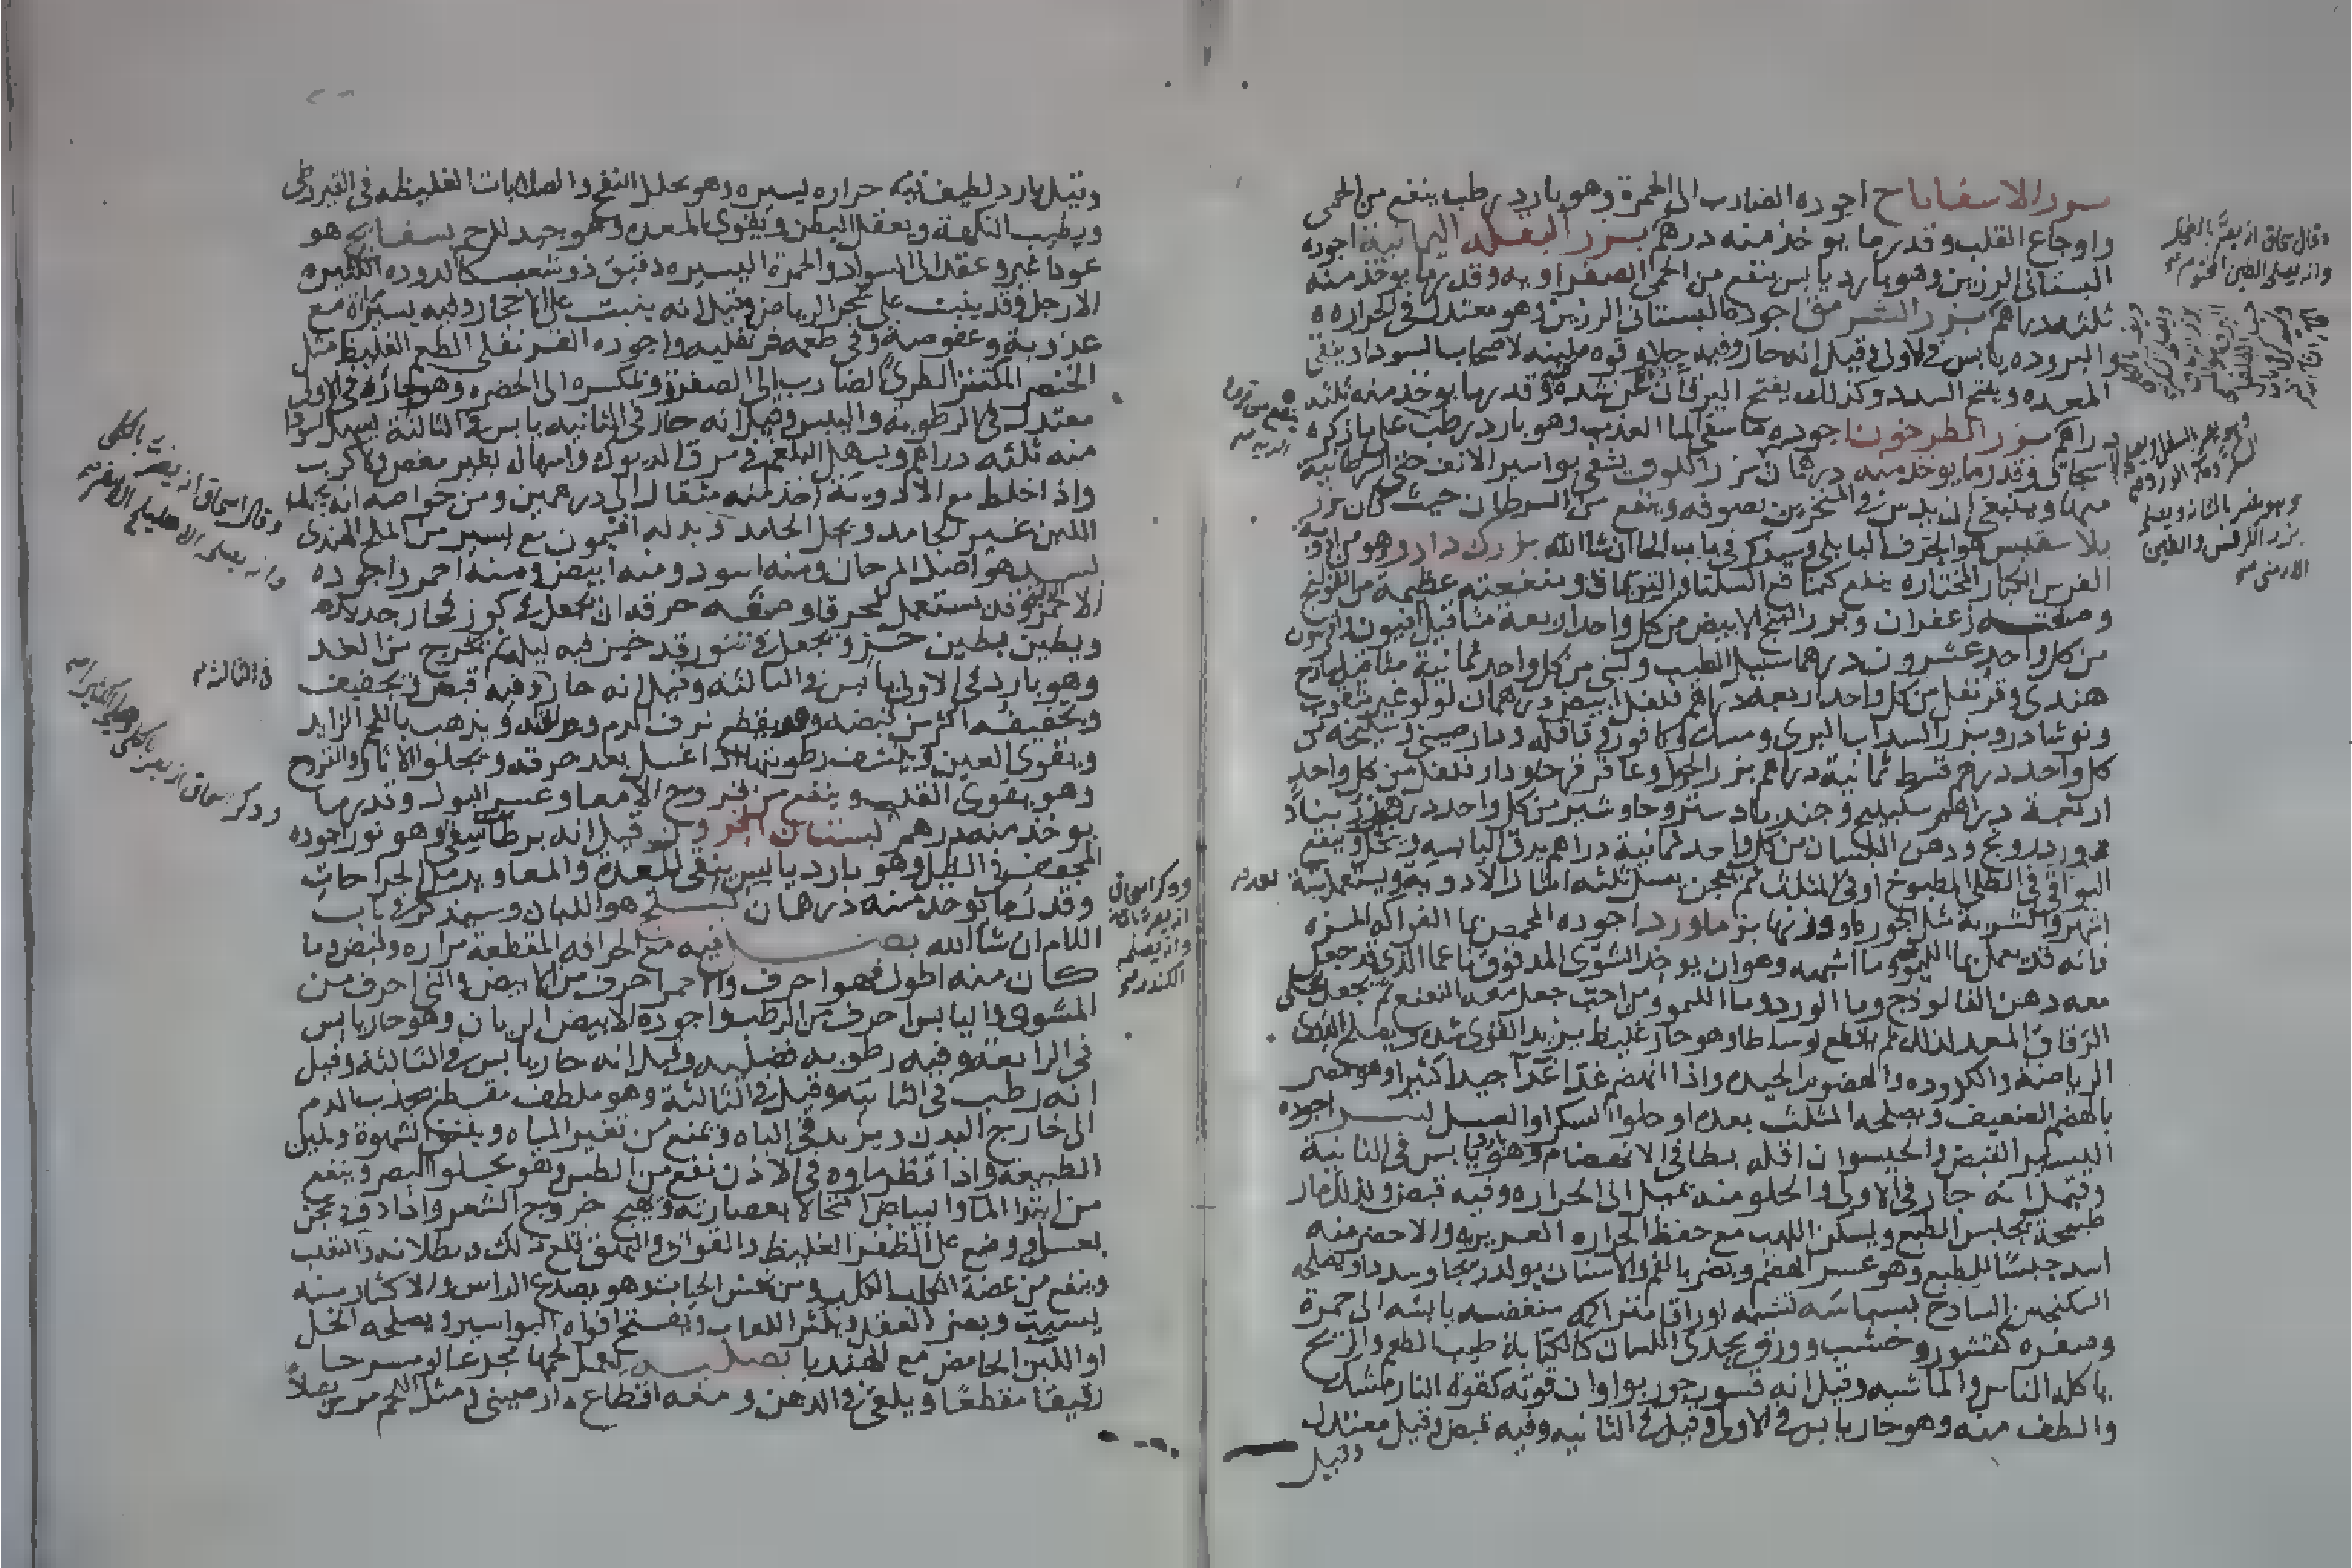 بزر الاسفاناخ اجوده الضارب الى الحمرة وهو بارد رطب ينفع من الحمى
واوجاع القلب وقدر ما يوخذ منه درهم بزر البقله اليمانية اجوده
البستانى الرزين وهو بارد يابس ينفع من الحمى الصفراويه وقدر ما يوخذ منه
ثلثه دراهم بزر السرمق اجوده البستانى الرزين وهو معتدل فى الحراره
والبروده يابس فى الاولى وقيل انه حار وفيه جلا وقوه ملينه لاصحاب السودا وينقى
المعده ويفتح السدد وكذلك يفتح اليرقان عن شده وقدر ما يوخذ منه ثلثه
دراهم بزر الطرخون اجوده ما سقى الما العذب وهو بارد رطب على ما ذكره
وقدر ما يوخذ منه درهمان بزر اللوف يشفى بواسير الانف حتى السرطانية
منها وينبغى ان يدس فى المنخرين بصوفه وينفع من السرطان حيث كان بزر
بلاسقيس هو الحرف البابلى وسيذكر فى باب الحا ان شا الله بزرك دارو هو من ادوية
الفرس الكبار المختاره ينفع كمنافع السلثا والقوقانى ومنفعته عظيمة من القولنج
وصفته زعفران وبزر البنج الابيض من كل واحد اربعة مثاقيل افيون
من كل واحد عشرون درهما سنبل الطيب ولبنى من كل واحد ثمانية مثاقيل ساذج
هندى وقرنفل من كل واحد اربعه دراهم فلفل ابيض درهمان لولو غير مثقوب
ونوشادر وبزر السداب البرى ومسك وكافور وقاقله ودارصينى وسليخه من
كل واحد درهم قسط ثمانية دراهم بزر الجزر وعاقرقرحا ودارفلفل من كل واحد
اربعة دراهم وجندبادستر وجاوشير من كل واحد درهم
ودهن البلسان من كل واحد ثمانية دراهم يدق اليابسه وينخل وينقع
البواقى فى الطلا المطبوخ او فى المثلث ثم يعجن بعسل ثلثه امثال الادوية ويستعمل بعد ستة
اشهر والشربة مثل الجوزه وزنها بزماورد اجوده المحمض بما الفواكه المزه
فانه قد يعمل بما الليمو وما اشبهه وهو ان يوخذ الشوى المدقوق ناعما الذى قد جعل
معه دهن الفالوذج وما الورد وما الليمو ومن احب جعل معه النعنع ثم يجعل على
الرقاق المعد لذلك ثم يقطع اوساطا وهو حار غليظ يزيد القوى شده ويصلح لذوى
الرياضة والكد وذوى الهضوم الجيده واذا انهضم غذا غذآ جيدا كثيرا وهو مضر
بالهضم الضعيف ويصلحه المثلث بعده او حلوا السكر او العسل بسر اجوده
اليسير القبض والحيسوان اقله بطا فى الانهضام وهو يابس فى الثانية
وقيل انه حار فى الاولى والحلو منه يميل الى الحراره وفيه قبض ولذلك صار
طبيخه يحبس الطبع ويسكن اللهب مع حفظ الحراره الغريزيه والاخضر منه
اشد حبسا للطبع وهو عسر الهضم ويضر بالفم والاسنان يولد ريحا وسددا ويصلحه
السكنجبين الساذج بسباسه تشبه اوراق متراكمه متغضنه يابسه الى حمرة
وصفره كقشور وخشب وورق يحذى اللسان كالكبابة طيب الطعم والريح
ياكله الناس والماشيه وقيل انه قشور جوزبوا وان قوته كقوة النارمشك
والطف منه وهو حار يابس فى الاولى وقيل فى الثانيه وفيه قبض وقيل معتدل
وقيل
وقيل بارد لطيف فيه حراره يسيره وهو يحلل النفخ والصلابات الغليظه فى القيروطى
ويطيب النكهة ويعقل البطن ويقوى المعده وهو جيد للرحم بسفايج هو
عود اغبر وعقد الى السواد والحمرة اليسيره دقيق ذو شعب كالدوده الكثيره
الارجل وقد ينبت على شجر الرياض وقيل انه ينبت على الاحجار وفيه يسير مراره مع
عذوبة وعفوصة وفى طعمه قرنفليه واجوده القرنفلى الطعم الغليظ مثل
الخنصر المكتنز الطرى الضارب الى الصفرة ومكسره الى الخضره وهو حار فى الاولى
معتدل فى الرطوبة واليبس وقيل انه حار فى الثانيه يابس فى الثالثة يسهل السودا
منه ثلثه دراهم ويسهل البلغم فى مرق الديوك واسهاله بغير مغص ولا كرب
واذا خلط مع الادوية اخذ منه مثقال الى درهمين ومن خواصه انه يجمد
اللبن غير الجامد ويحل الجامد وبدله افتيمون مع يسير من الملح الهندى
بسد هو اصل المرجان ومنه اسود ومنه ابيض ومنه احمر واجوده
الاحمر وقد يستعمل محرقا وصفة حرقه ان يجعل فى كوز فخار جديد
ويطين بطين حر ويجعل فى تنور قد خبز فيه ليلة ثم يخرج من الغد
وهو بارد فى الاولى يابس فى الثالثة وقيل انه حار وفيه قبض وتجفيف
وتجفيفه اكثر من قبضه وهو يقطع نزف الدم ويذهب باللحم الزايد
ويقوى العين وينشف رطوبتها اذا غسل بعد حرقه ويجلوا الاثار والقروح
وهو يقوى القلب وينفع من قروح الامعا وعسر البول وقدر ما
يوخذ منه درهم بستان افروز قيل انه وهو نور اجوده
المجفف فى الظل وهو بارد يابس ينقى المعده والمعا ويدمل الجراحات
وقدر ما يوخذ منه درهمان بستج هو اللبان وسيذكر فى باب
اللام ان شا الله بصل فيه مع الحرافه المقطعة مراره وقبض وما
كان منه اطول فهو احرف والاحمر احرف من الابيض والنى احرف من
المشوى واليابس احرف من الرطب واجوده الابيض الريان وهو حار يابس
فى الرابعة وفيه رطوبه فضليه وقيل انه حار يابس فى الثالثة وقيل
انه رطب فى الثانيه وقيل فى الثالثة وهو ملطف مقطع يجذب الدم
الى خارج البدن ويزيد فى الباه وينفع من تغير المياه ويفتق الشهوة ويلين
الطبيعة واذا قطر ماوه فى الاذن نفع من الطنين وهو يجلوا البصر وينفع
من ابتدا الما والبياض اكتحالا بعصارته ويهيج خروج الشعر واذا دق وعجن
بعسل ووضع على الظفر الغليظ والقوابى والبهق قلع ذلك
وينفع من عضة الكلب الكلب ومن نهش الحيات وهو يصدع الراس والاكثار منه
يسبت ويضر العقل ويكثر اللعاب ويفتح افواه البواسير ويصلحه الخل
او اللبن الحامض مع الهندبا بصليه يجعل لحمها مجزعا
رقيقا مقطعا ويلقى فى الدهن ومعه اقطاع دارصينى
وقال اسحاق انه يضر بالطحال
وانه يصلحه الطين المختوم
وهو مضر بالمثانه ويصلحه
بزر الكرفس والطين
الارمنى
وقال اسحاق انه يضر بالكلى
وانه يصلحه الاهليلج الاصفر
فى الثالثه
وذكر اسحاق انه يضر بالكلى ويصلحه الكثيرا
وذكر اسحاق
انه يضر بالمثانة
وانه يصلحه
الكندر
بعد